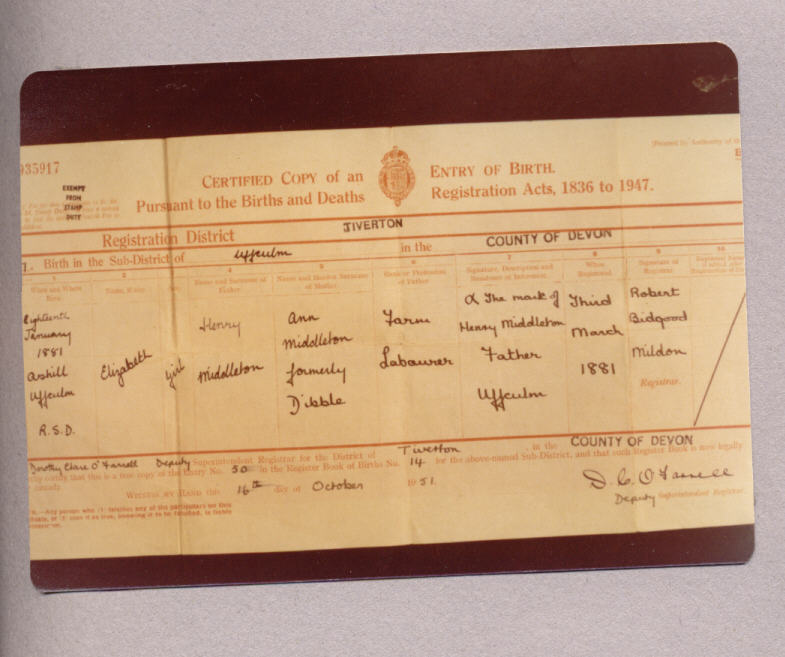 035917
EXEMPT
FROM
STAMP
DUTY
CERTIFIED COPY OF an ENTRY OF BIRTH.
Pursuant to the Births and Deaths Registration Acts, 1836 to 1947.
Registration District TIVERTON
Birth in the Sub-District of Uffculm in the COUNTY OF DEVON
1 2 4 5 6 7 8 9 10
When and Where Born Name, if any Name and Surname of Father Name and Maiden Surname of Mother Rank or Profession of Father Signature, Description and Residence of Informant When Registered Signature of Registrar
Eighteenth January 1881 Ashill Uffculm R.S.D.
Elizabeth
girl
Henry Middleton
Ann Middleton formerly Dibble
Farm Labourer
X The mark of Henry Middleton Father Uffculm
Third March 1881
Robert Bidgood Mildon
Registrar.
Dorothy Clare O'Farrell Deputy Superintendent Registrar for the District of Tiverton, in the COUNTY OF DEVON
certify that this is a true copy of the Entry No. 50 in the Register Book of Births No. 14 for the above-named Sub-District, and that such Register Book is now legally
WITNESS MY HAND this 16th day of October 1951.
D. C. O'Farrell
Deputy Superintendent Registrar.